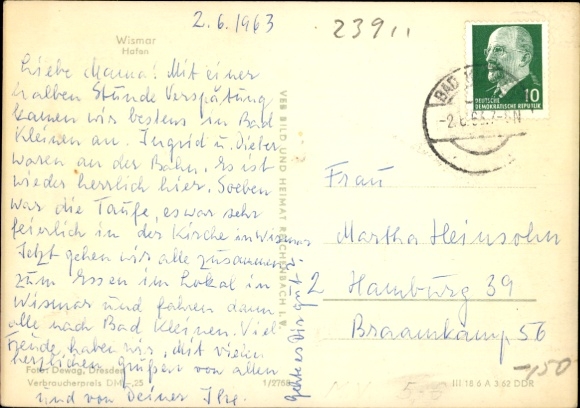 2.6.1963
23911
Wismar
Hafen
Liebe Mama! Mit einer
halben Stunde Verspätung
kamen wir bestens in Bad
Kleinen an. Ingrid u. Dieter
waren an der Bahn. Es ist
wieder herrlich hier. Soeben
war die Taufe, es war sehr
feierlich in der Kirche in Wismar
Jetzt gehen wir alle zusammen
zum Essen im Lokal in
Wismar und fahren dann
alle nach Bad Kleinen. Viel
Freude haben wir, mit vielen
herzlichen Grüßen von allen
und von Deiner
Foto: Dewag, Dresden
Verbraucherpreis DM -,25
1/2768
VEB BILD UND HEIMAT REICHENBACH I. V.
geht es Dir gut
10
DEUTSCHE
DEMOKRATISCHE REPUBLIK
BAD
-2.6.63.7-8N
Frau
Martha Heinsohn
2 Hamburg 39
Braamkamp 56
-150
III 18 6 A 3 62 DDR